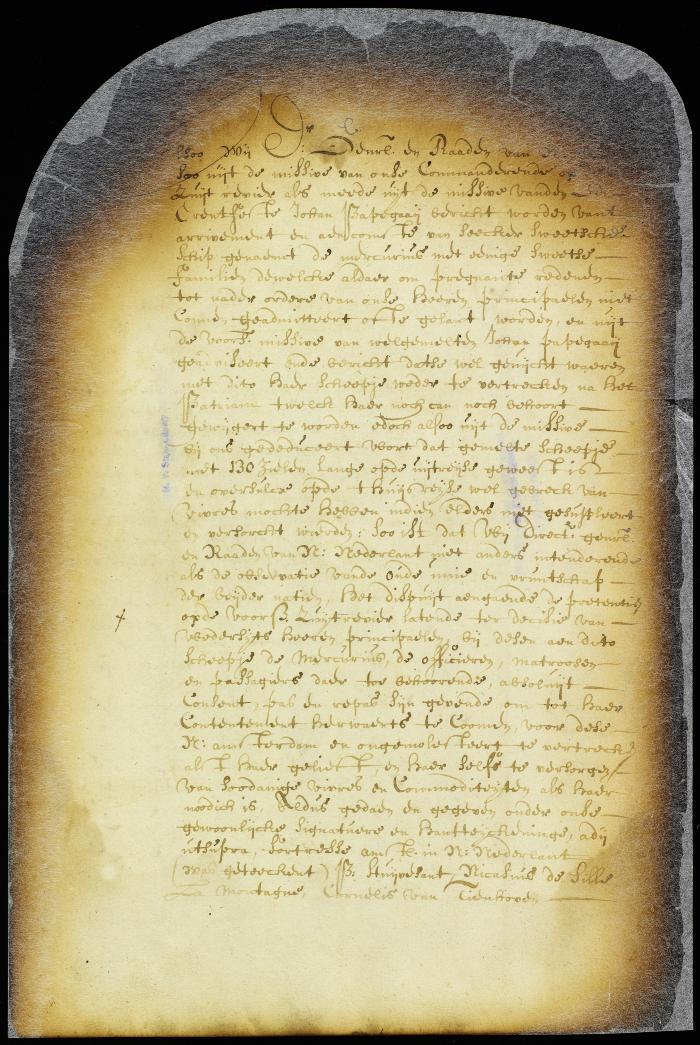 Alsoo Wij Dr. Genrl. en Raaden van
Soo uijt de missive van onse Commanderende op
Zuijt revier als meede uijt de missive vanden
Crentser te Johan Papegaaij bericht worden vant
arrivement en aencomste van seecker Sweetsche
schip genaemt de mercurius met eenige Sweetse
familien dewelcke aldaer om pregnante redenen
tot nader ordere van onse heeren principaelen niet
Connen geadmitteert ofte gelant worden, en uijt
de voors: missive van welgemelten Johan papegaaij
geadviseert ende bericht datse wel genijcht waeren
met dito haer scheepje weder te vertrecken na het
Patriam twelck haer noch can noch behoort
gewijgert te worden edoch alsoo uijt de missive
bij ons gededuceert wort dat gemelte scheepje
met 130 zielen lange opde uijtreijse geweest is
en oversulcx opde thuijsreijse wel gebreck van
vivres mochte hebben indien elders niet gesuppleert
en versorcht wierden: Soo ist dat Wij Direct: genrl:
en Raaden van N: Nederlant niet anders intenderende
als de observatie vande oude unie en vruntschap
der beijder natien, het dispuijt aengaende de pretentie
opde voorss. Zuijtrevier latende ter decisie van
wederzijts heeren principaelen, bij desen aen dito
scheepje de Mercurius, de officieren, matroosen
en passagiers daer toe behoorende, absoluijt
Consent, pas en repas sijn gevende om tot haer
Contentement herwaerts te Coomen, voor dese
N: amsterdam en ongemolesteert te vertrecke
alst haer gelieft, en haer selfs te versorgen
van soodanige vivres en Commoditeijten als haer
noodich is, Aldus gedaen en gegeven onder onse
gewoonlijcke signatuere en hantteijckeninge, adij
utsupra, fortresse amst. in N: Nederlant
(was geteeckent) P: Stuijvesant, Nicasius de Sille
La Montagne, Cornelis van Tienhoven